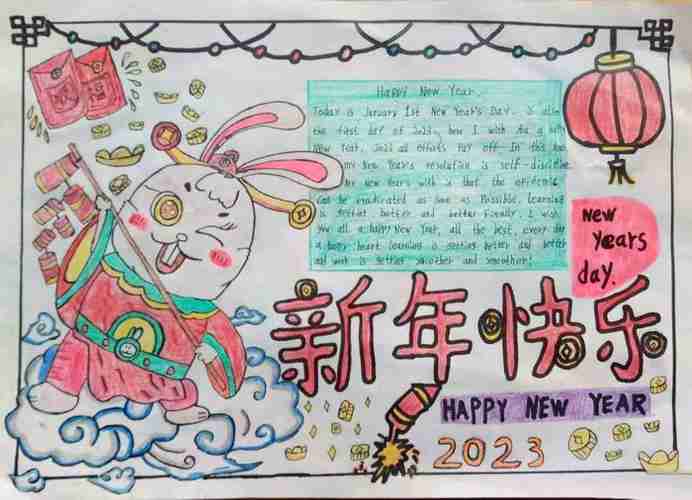 Happy New Year.
Today is January 1st New Year's Day. is also
the first day of 2023, here I wish you a happy
New Year, 2023 all efforts Pay off In this
my New Year's resolution is self-discipline
New Years wish is that the epidemic
can be eradicated as soon as Possible, Learning
is getting better and better Finally, I wish
you all a happy New Year, all the best, every day
a happy heart learning is getting better and better
and work is getting smoother and smoother!
New
Years
day.
新年快乐
HAPPY NEW YEAR
2023